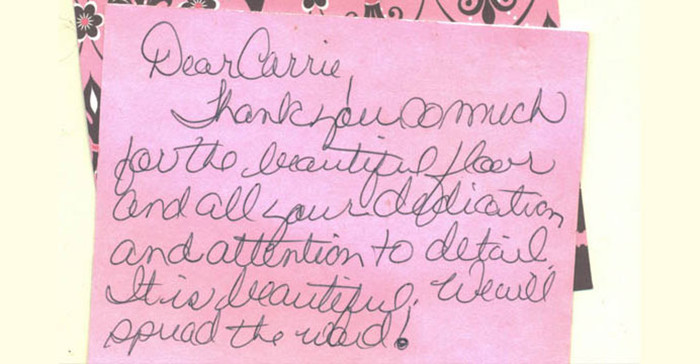 Dear Carrie,
Thank you so much
for the beautiful floor
and all your dedication
and attention to detail.
It is beautiful. We will
spread the word!